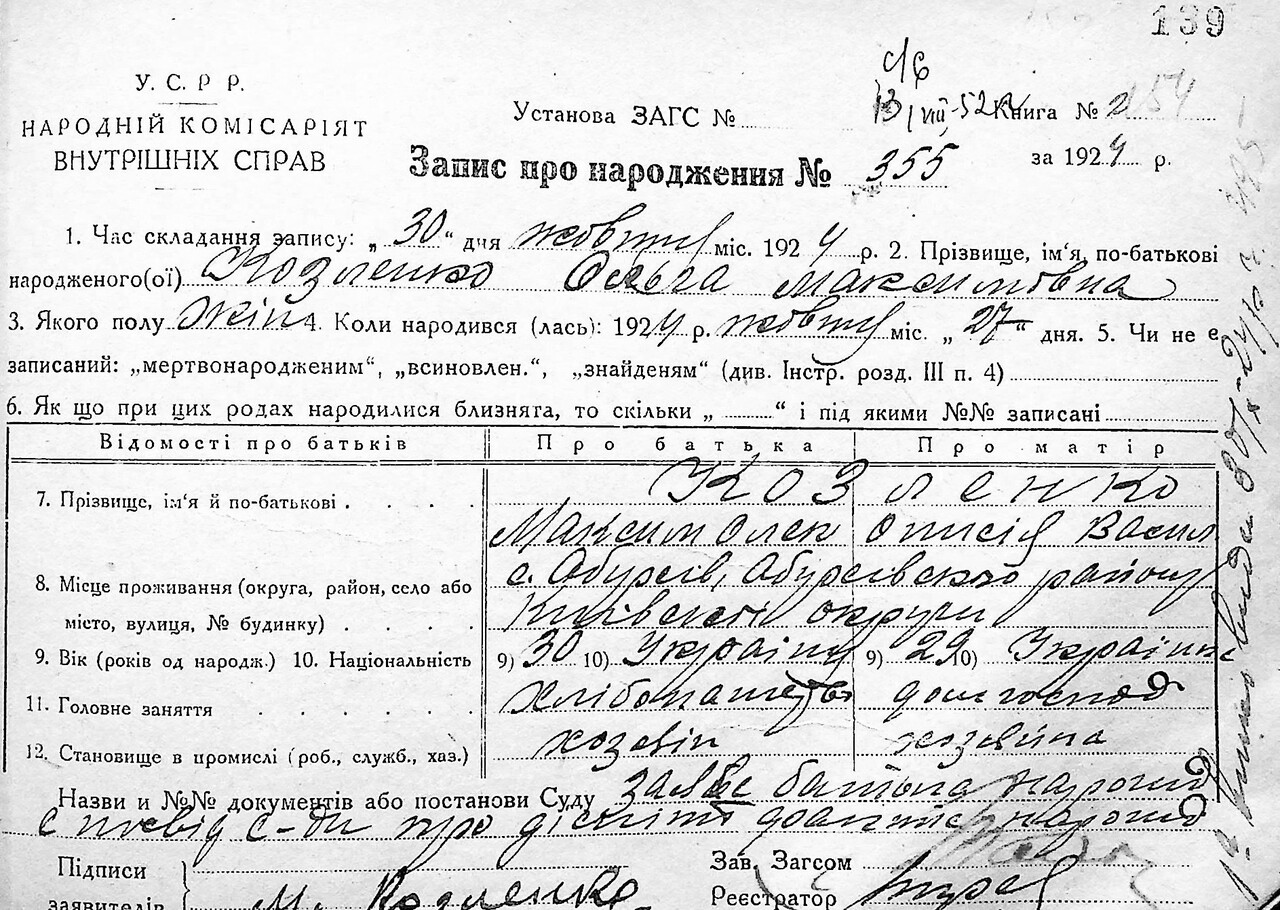 139
У. С. Р Р.
НАРОДНІЙ КОМІСАРІЯТ
ВНУТРІШНІХ СПРАВ
Установа ЗАГС №
13/VIII-52 г
Книга № 2 154
Запис про народження № 355
за 1924 р.
1. Час складання запису: „ 30 “ дня жовтня міс. 1924 р. 2. Прізвище, ім‘я, по-батькові
народженого(ої) Козленко Ольга Максимовна
3. Якого полу жін 4. Коли народився (лась): 1924 р. жовтня міс. „ 27 “ дня. 5. Чи не є
записаний: „мертвонародженим“, „всиновлен.“, „знайденям“ (див. Інстр. розд. III п. 4)
6. Як що при цих родах народилися близнята, то скільки „ “ і під якими №№ записані
Відомості про батьків Про батька Про матір
7. Прізвище, ім‘я й по-батькові . . . . Козленко
Максим Олек Онисія Васил
8. Місце проживання (округа, район, село або с. Абухів, Абухівского району
місто, вулиця, № будинку) . . . . Київскоі округи
9. Вік (років од народж.) 10. Національність 9) 30 10) Україн 9) 29 10) Україн
11. Головне заняття . . . . . . хлібопаше домгоспод
12. Становище в промислі (роб., служб., хаз.) хозяїн хозяйка
Назви и №№ документів або постанови Суду заява батька народж
про
Підписи
заявителів М. Козленко
Зав. Загсом
Реєстратор